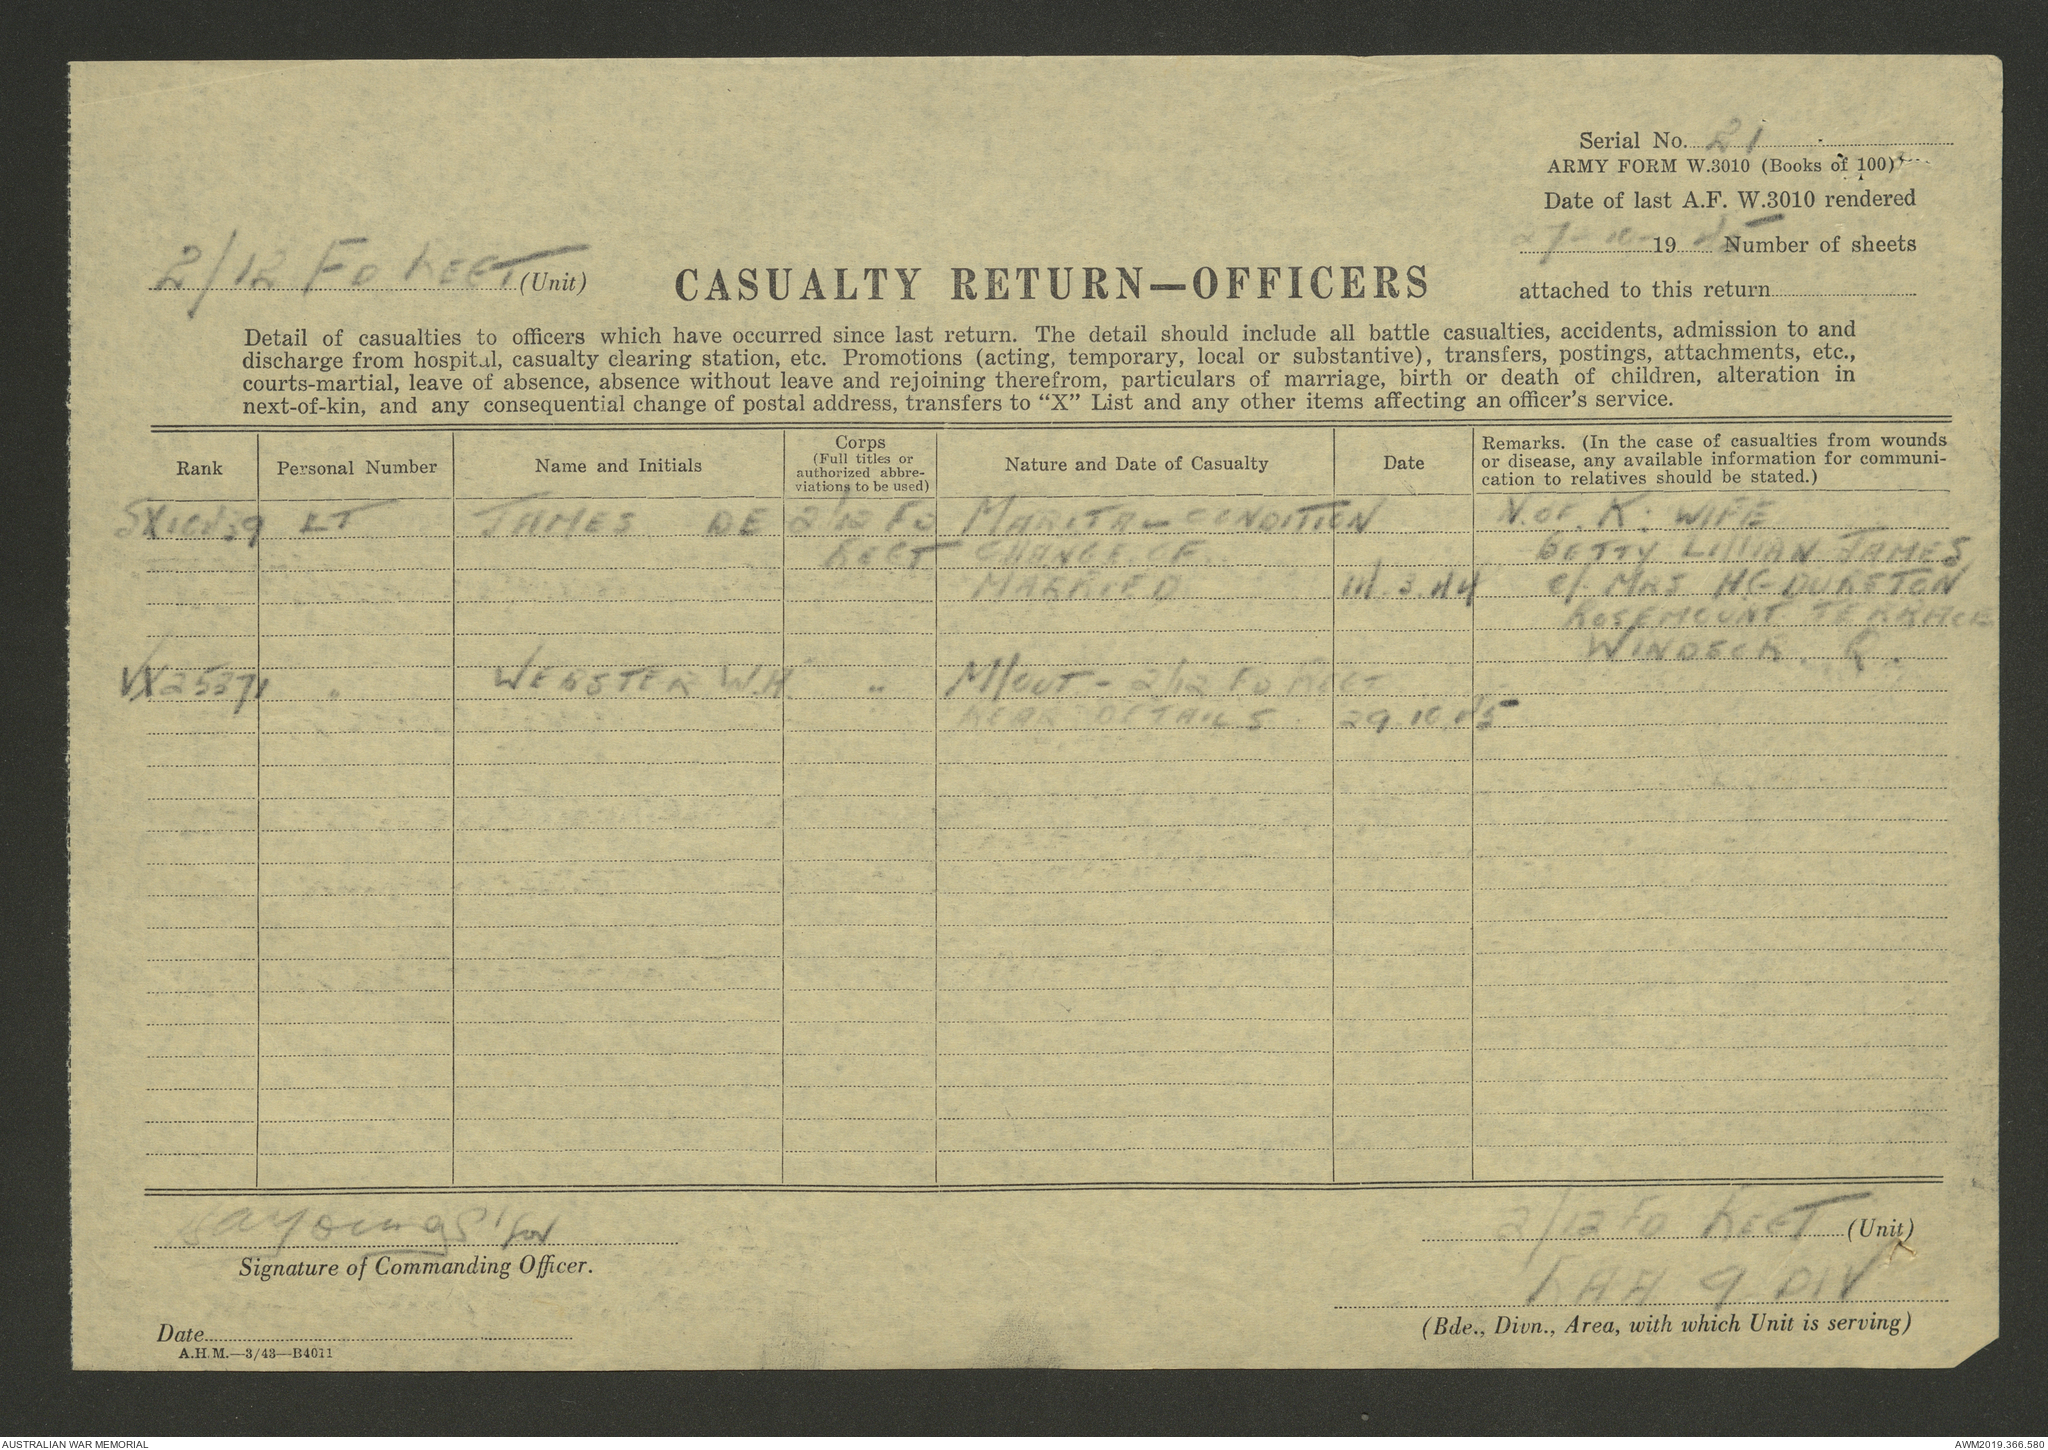 Serial No. 21
ARMY FORM W.3010 (Books of 100)
Date of last A.F. W.3010 rendered
27-10- 19 45 Number of sheets
attached to this return
2/12 FD REGT (Unit)
CASUALTY RETURN—OFFICERS
Detail of casualties to officers which have occurred since last return. The detail should include all battle casualties, accidents, admission to and
discharge from hospital, casualty clearing station, etc. Promotions (acting, temporary, local or substantive), transfers, postings, attachments, etc.,
courts-martial, leave of absence, absence without leave and rejoining therefrom, particulars of marriage, birth or death of children, alteration in
next-of-kin, and any consequential change of postal address, transfers to "X" List and any other items affecting an officer's service.
Rank Personal Number Name and Initials Corps (Full titles or authorized abbreviations to be used) Nature and Date of Casualty Date Remarks. (In the case of casualties from wounds
or disease, any available information for communi-
cation to relatives should be stated.)
LT JAMES DE 2/12 FD MARITAL CONDITION N. OF. K: WIFE
REGT CHANGE OF BETTY LILLIAN JAMES
MARRIED 11.3.44 c/- MRS
ROSEMOUNT TERRACE
VX25371 " WEBSTER W.H. " M/OUT - 2/12 FD REGT
REAR DETAILS 29.10.45
for
Signature of Commanding Officer.
2/12 FD REGT (Unit)
RAA 9 DIV
(Bde., Divn., Area, with which Unit is serving)
Date
A.H.M.—3/43—B4011
AUSTRALIAN WAR MEMORIAL
AWM2019.366.580